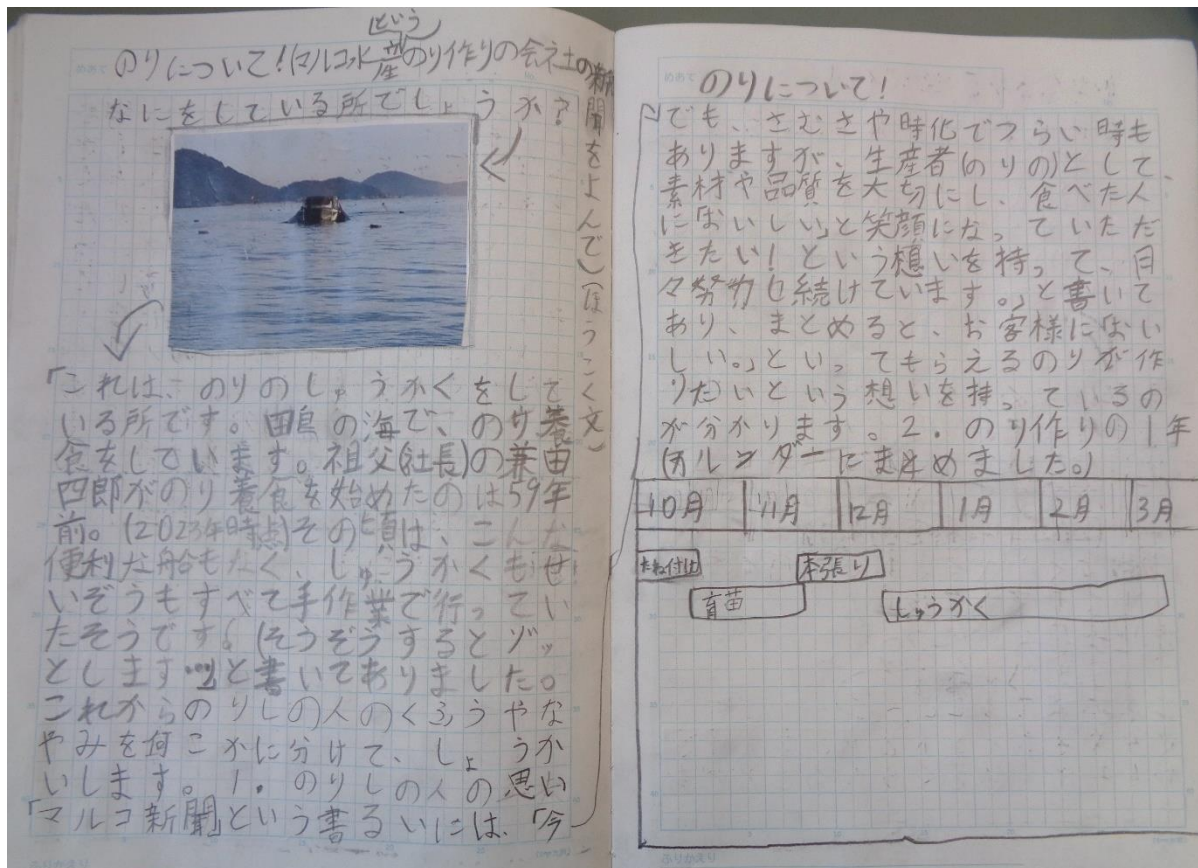 のりについて!(マルコ水産というのり作りの会社の新聞をよんで)(ほうこく文)
なにをしている所でしょうか?
「これは、のりのしゅうかくをして
いる所です。田島の海で、のり養
食をしています。祖父(社長)の兼田
四郎がのり養食を始めたのは59年
前。(2023年時点)その頃は、こんな
便利な船もなく、しゅうかくもせ
いぞうもすべて手作業で行ってい
たそうです。(そうぞうするとゾッ
とします…)」と書いてありました。
これからのりしの人のくふうやな
やみを何こかに分けて、しょうか
いします。1.のりしの人の思い
「マルコ新聞」という書るいには、「今
のりについて!
でも、さむさや時化でつらい時も
ありますが、生産者(のりの)として、
素材や品質を大切にし、食べた人
に「おいしい」と笑顔になっていただ
きたい!という想いを持って、日
々努力し続けています。」と書いて
あり、まとめると、お客様に「おい
しい。」といってもらえるのりが作
りたいという想いを持っているの
が分かります。2.のり作りの1年
(カレンダーにまとめました。)
10月 11月 12月 1月 2月 3月
たね付け 本張り
育苗 しゅうかく